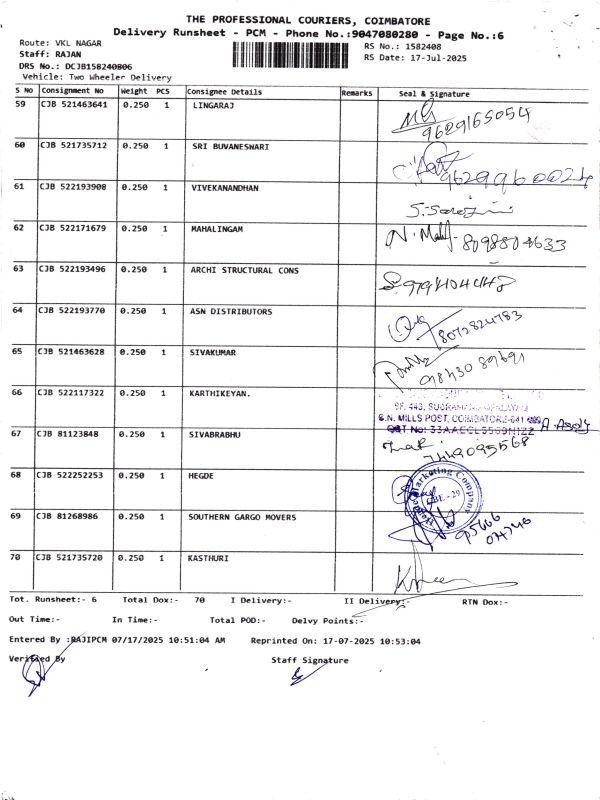 THE PROFESSIONAL COURIERS, COIMBATORE
Delivery Runsheet - PCM - Phone No.:9047080280 - Page No.:6
Route: VKL NAGAR
Staff: RAJAN
DRS No.: DCJB158240806
Vehicle: Two Wheeler Delivery
RS No.: 1582408
RS Date: 17-Jul-2025
S No Consignment No Weight PCS Consignee Details Remarks Seal & Signature
59 CJB 521463641 0.250 1 LINGARAJ
9629165054
60 CJB 521735712 0.250 1 SRI BUVANESWARI
9629960024
61 CJB 522193908 0.250 1 VIVEKANANDHAN
S. Sarojini
62 CJB 522171679 0.250 1 MAHALINGAM
8098804633
63 CJB 522193496 0.250 1 ARCHI STRUCTURAL CONS
64 CJB 522193770 0.250 1 ASN DISTRIBUTORS
8072824783
65 CJB 521463628 0.250 1 SIVAKUMAR
9843089691
66 CJB 522117322 0.250 1 KARTHIKEYAN.
S.N. MILLS POST, COIMBATORE-641
67 CJB 81123848 0.250 1 SIVABRABHU
7449095568
68 CJB 522252253 0.250 1 HEGDE
Marketing Company
CBE - 29
69 CJB 81268986 0.250 1 SOUTHERN GARGO MOVERS
70 CJB 521735720 0.250 1 KASTHURI
Tot. Runsheet:- 6 Total Dox:- 70 I Delivery:- II Delivery:- RTN Dox:-
Out Time:- In Time:- Total POD:- Delvy Points:-
Entered By :RAJIPCM 07/17/2025 10:51:04 AM Reprinted On: 17-07-2025 10:53:04
Verified By Staff Signature